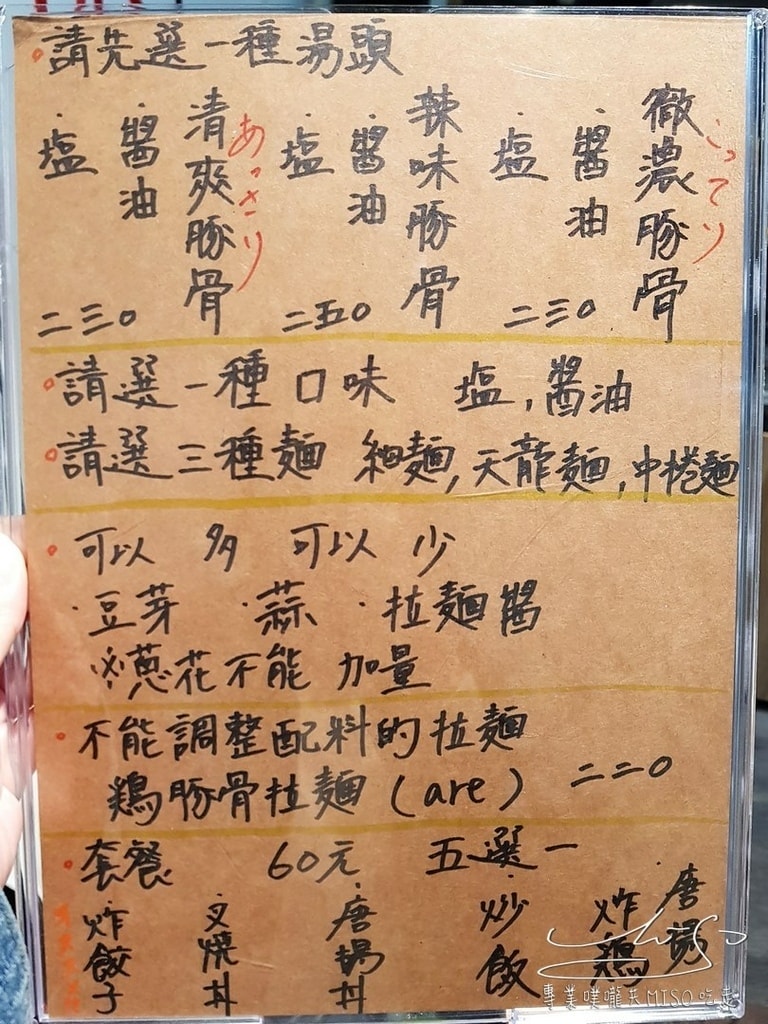 請先選一種湯頭
微濃豚骨
こってり
·醬油
·塩
二三0
辣味豚骨
·醬油
·塩
二五0
清爽豚骨
あっさり
·醬油
·塩
二三0
請選一種口味 塩,醬油
請選三種麵 細麵,天龍麵,中捲麵
可以 多 可以 少
·豆芽 ·蒜 ·拉麵醬
※蔥花不能加量
不能調整配料的拉麵
鶏豚骨拉麵(are) 二二0
套餐 60元 五選一
·唐揚
炸鶏
·炒飯
·唐揚丼
·叉燒丼
·炸餃子
MISO
專業噗嚨共MISO吃趣